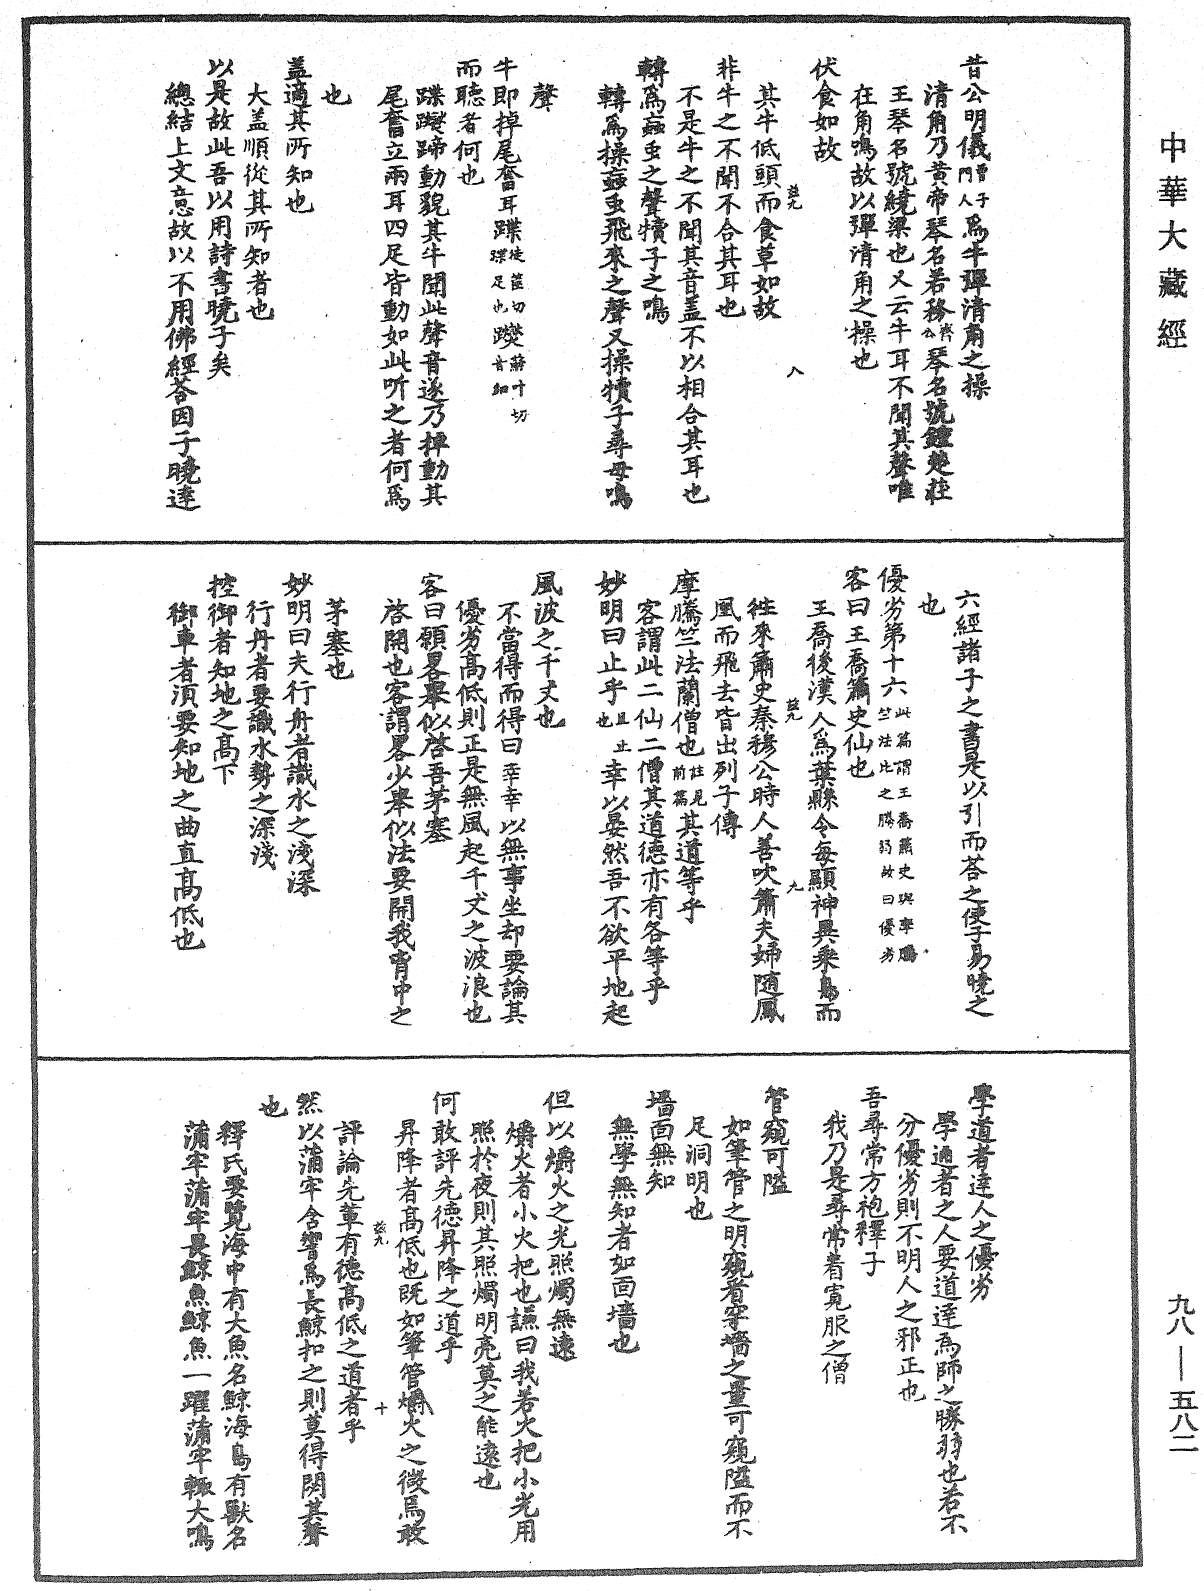 中華大藏經
昔公明儀曾子門人爲牛彈清角之操
清角乃黃帝琴名若務齊公琴名號鐘楚莊
王琴名號繞梁也又云牛耳不聞其聲唯
在角鳴故以彈清角之操也
伏食如故
其牛低頭而食草如故
非牛之不聞不合其耳也
不是牛之不聞其音盖不以相合其耳也
轉爲䖟虫之聲犢子之鳴
轉爲操䖟虫飛來之聲又操犢子尋母鳴
聲
牛即掉尾奮耳蹀徒箧切蹀足也躞蘇叶切音細
而聽者何也
蹀躞蹄動貌其牛聞此聲音遂乃掉動其
尾奮立兩耳四足皆動如此听之者何爲
也
盖適其所知也
大盖順從其所知者也
以是故此吾以用詩書曉子矣
總結上文意故以不用佛經荅因子曉達
六經諸子之書是以引而荅之使子易曉之
也
優劣第十六此篇謂王喬蕭史與摩騰竺法比之勝弱故曰優劣
客曰王喬簫史仙也
王喬後漢人爲葉縣令每顯神異乘鳧而
徃來簫史秦穆公時人善吹簫夫婦隨鳳
凰而飛去皆出列子傳
摩騰竺法蘭僧也註見前篇其道等乎
客謂此二仙二僧其道德亦有各等乎
妙明曰止乎且止也幸以晏然吾不欲平地起
風波之千丈也
不當得而得曰幸幸以無事坐却要論其
優劣高低則正是無風起千丈之波浪也
客曰願畧舉似以啓吾茅塞
啓開也客謂畧少舉似法要開我胷中之
茅塞也
妙明曰夫行舟者識水之淺深
行舟者要識水勢之深淺
控御者知地之高下
御車者湏要知地之曲直高低也
學道者達人之優劣
學通者之人要道達爲師之勝弱也若不
分優劣則不明人之邪正也
吾尋常方袍釋子
我乃是尋常着寬服之僧
管窺可隘
如筆管之明窺者穿墻之量可窺隘而不
足洞明也
墻面無知
無學無知者如面墻也
但以爝火之光照燭無遠
爝火者小火把也謙曰我若火把小光用
照於夜則其照燭明亮莫之能遠也
何敢評先德昇降之道乎
昇降者高低也既如筆管爝火之微焉敢
評論先軰有德高低之道者乎
然以蒲牢含響爲長鯨扣之則莫得閉其聲
也
釋氏要覽海中有大魚名鯨海島有獸名
蒲牢蒲牢畏鯨魚鯨魚一躍蒲牢輙大鳴
九八—五八二